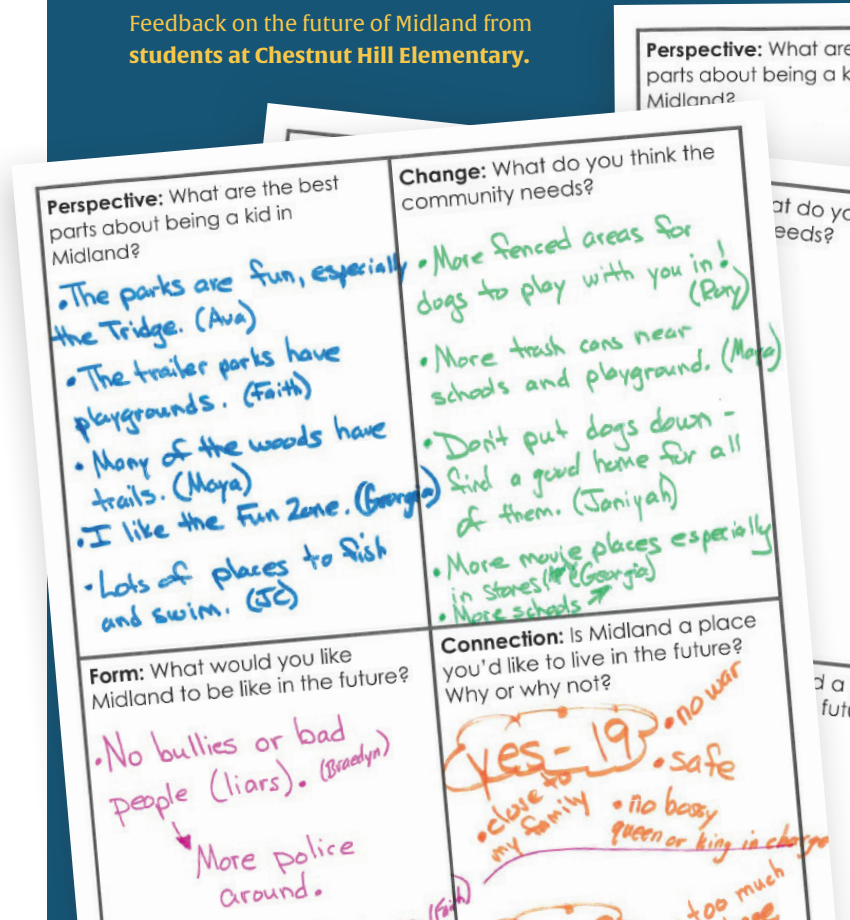 Feedback on the future of Midland from
students at Chestnut Hill Elementary.
Perspective: What are
parts about being a k
Midland?
Perspective: What are the best
parts about being a kid in
Midland?
•The parks are fun, especially
the Tridge. (Ava)
•The trailer parks have
playgrounds. (Faith)
•Many of the woods have
trails. (Maya)
•I like the Fun Zone. (Georgia)
•Lots of places to fish
and swim. (JC)
Change: What do you think the
community needs?
•More fenced areas for
dogs to play with you in!
(Rory)
•More trash cans near
schools and playground. (Maya)
•Don't put dogs down -
find a good home for all
of them. (Janiyah)
•More movie places especially
in stores! (Georgia)
•More schools
at do yo
eeds?
Form: What would you like
Midland to be like in the future?
•No bullies or bad
people (liars). (Braedyn)
More police
around.
(Faith)
Connection: Is Midland a place
you'd like to live in the future?
Why or why not?
yes - 19
•no war
•safe
•close to
my family
•no bossy
queen or king in charge
too much
d a
futu